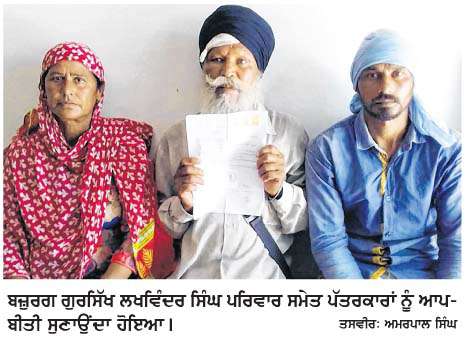 ਬਜ਼ੁਰਗ ਗੁਰਸਿੱਖ ਲਖਵਿੰਦਰ ਸਿੰਘ ਪਰਿਵਾਰ ਸਮੇਤ ਪੱਤਰਕਾਰਾਂ ਨੂੰ ਆਪ-
ਬੀਤੀ ਸੁਣਾਉਂਦਾ ਹੋਇਆ। ਤਸਵੀਰ: ਅਮਰਪਾਲ ਸਿੰਘ